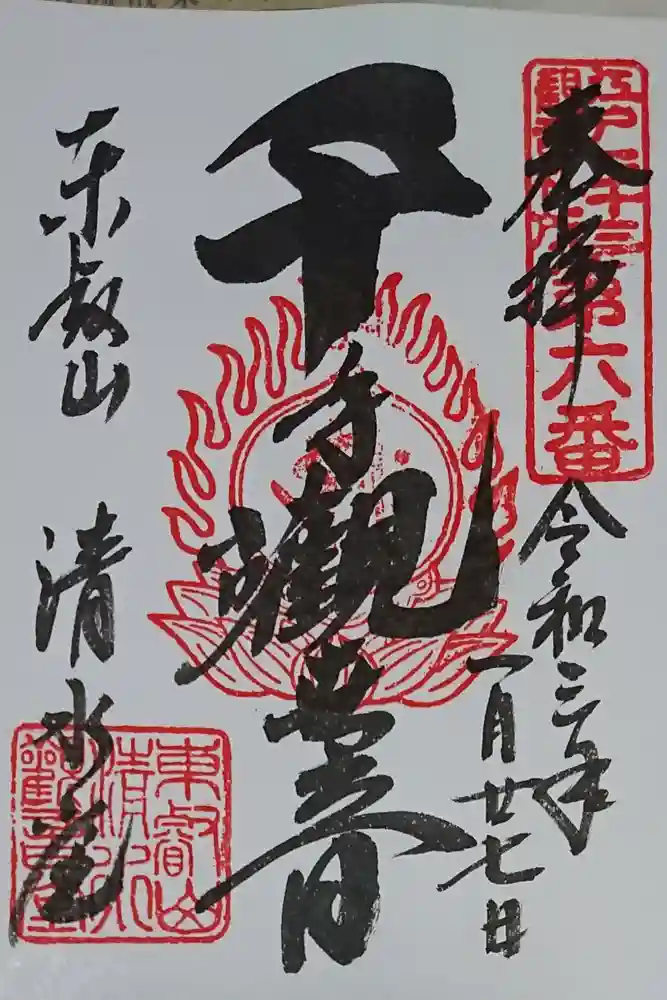 奉拝
江戸三十三
第六番
令和三年
一月廿七日
千手觀世音
東叡山
清水堂
東叡山
清水
觀音堂